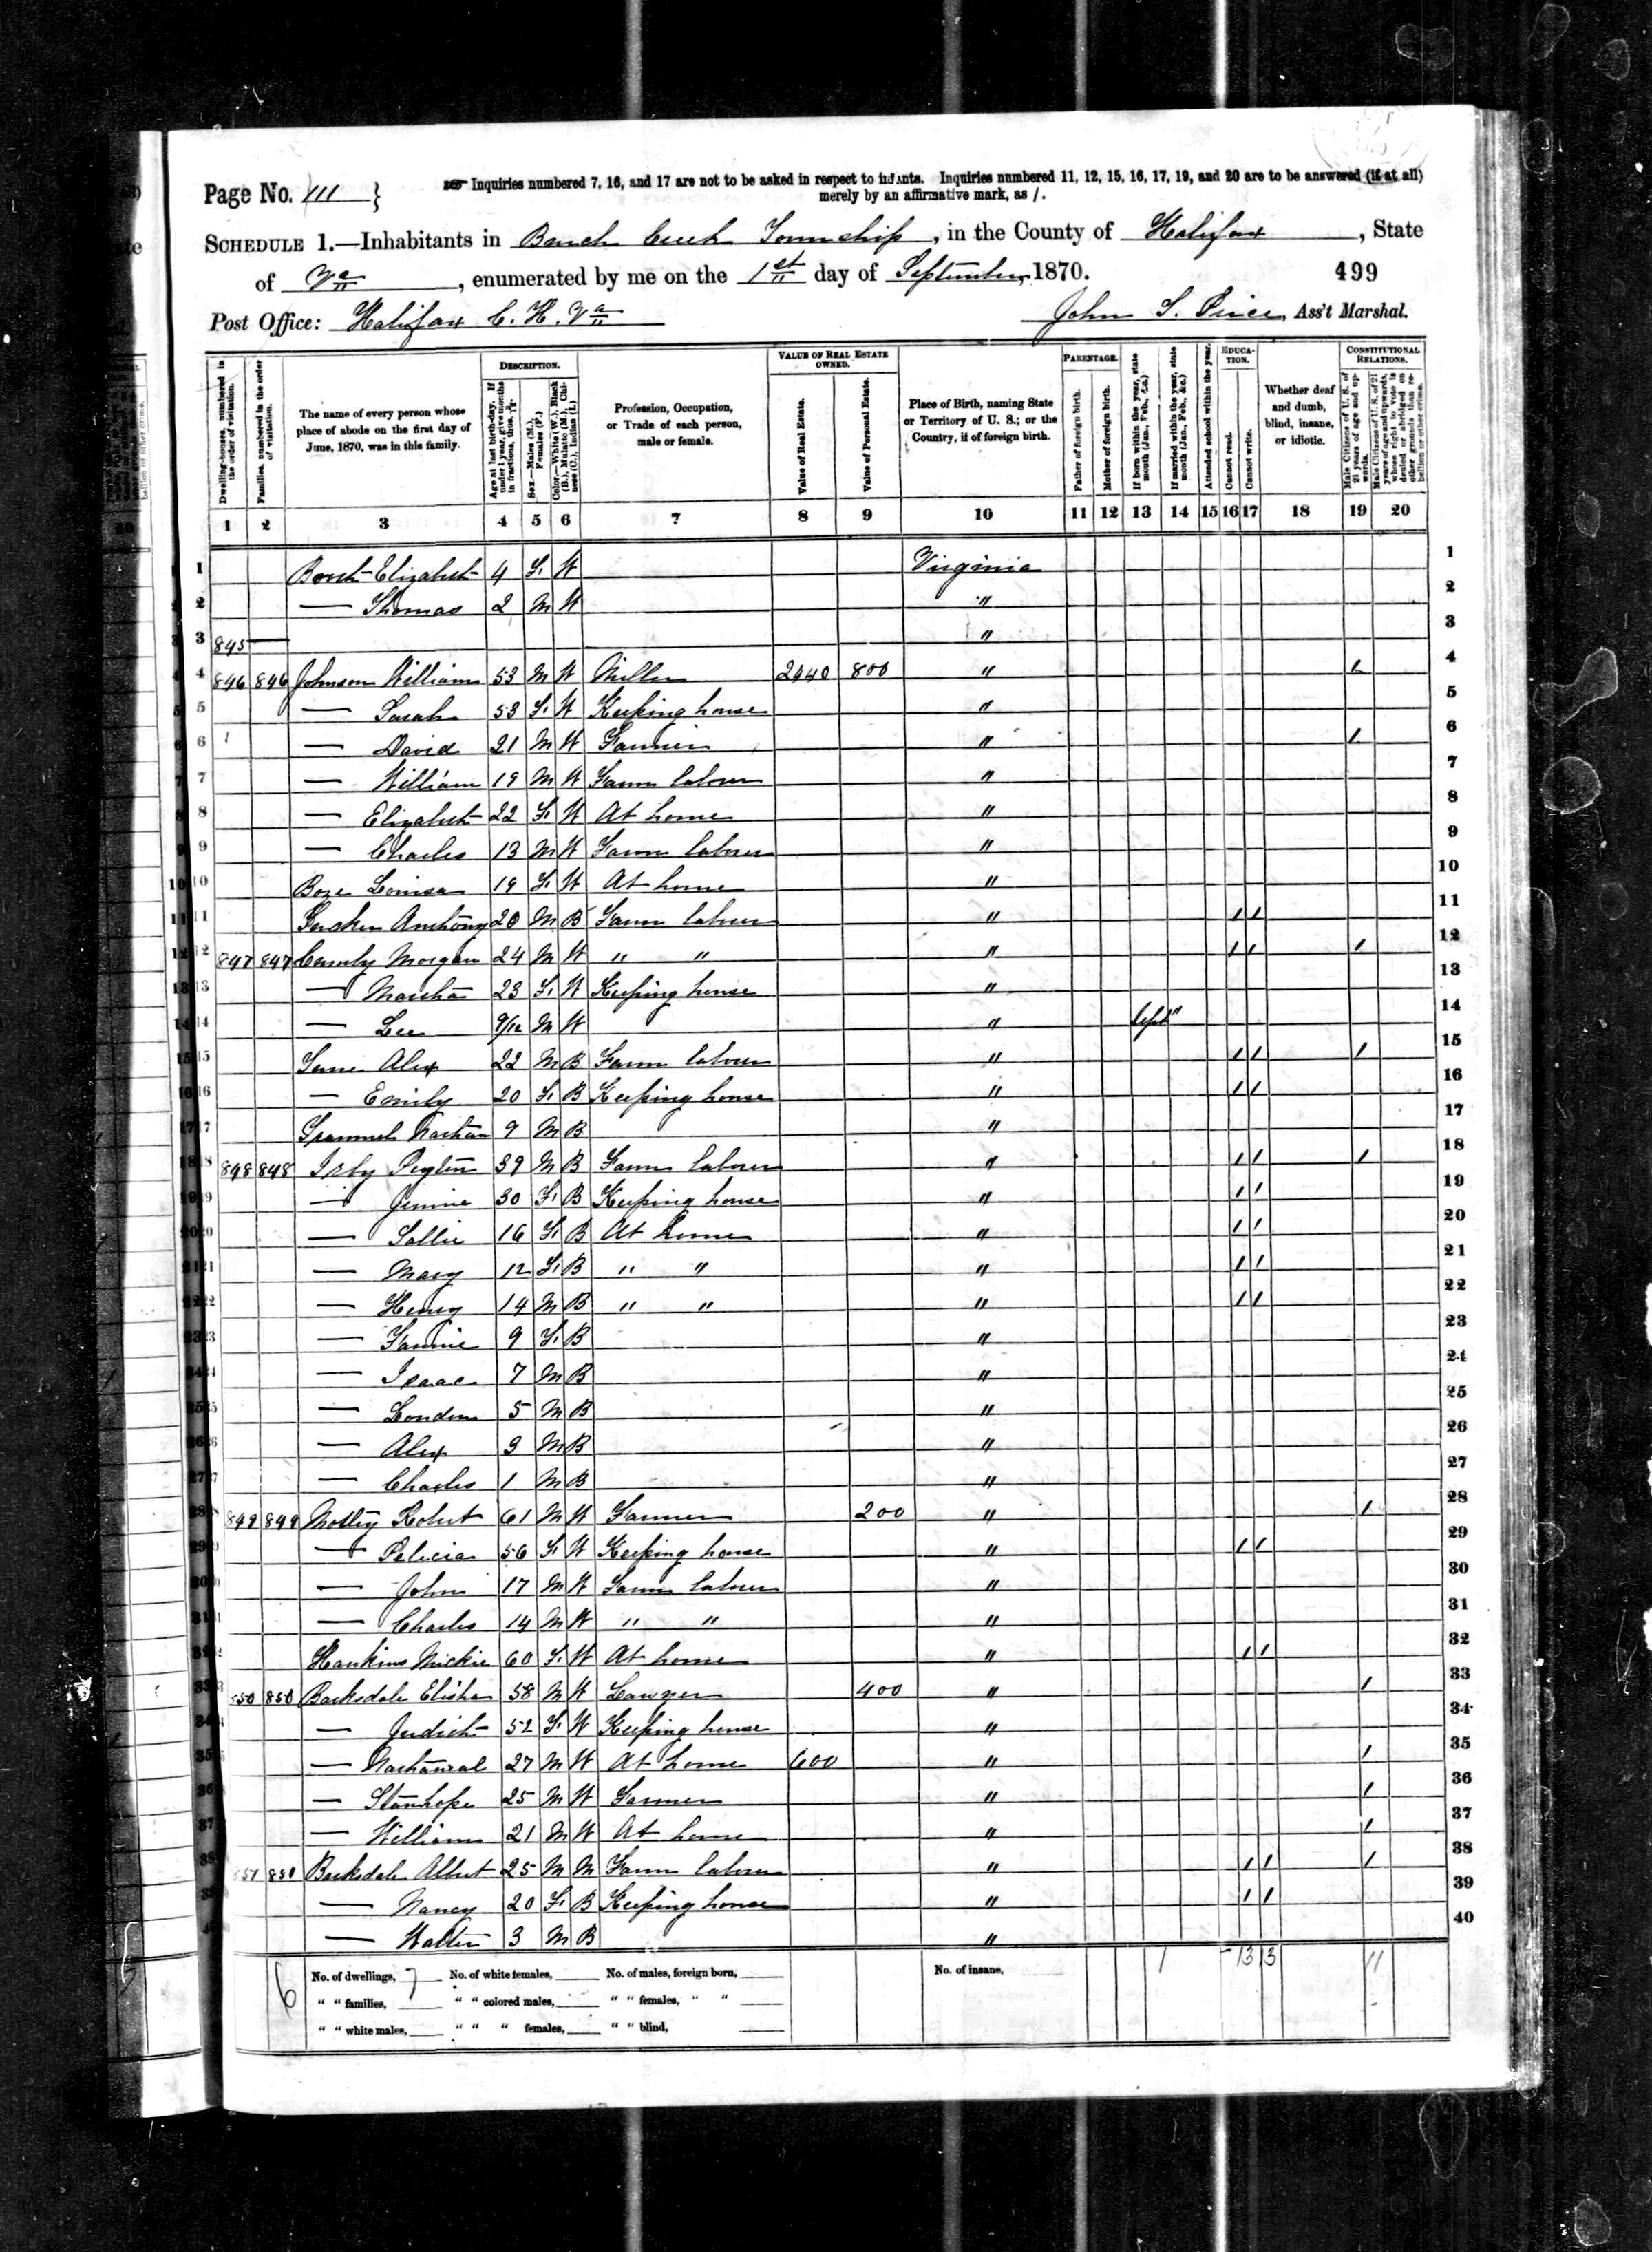 Page No. 111 }
Inquiries numbered 7, 16, and 17 are not to be asked in respect to infants. Inquiries numbered 11, 12, 15, 16, 17, 19, and 20 are to be answered (if at all)
merely by an affirmative mark, as /.
SCHEDULE 1.—Inhabitants in Township, in the County of Halifax, State
of Va, enumerated by me on the 1st day of September, 1870. 499
Post Office: Halifax C. H. Va John Ass't Marshal.
Dwelling-houses, numbered in the order of visitation.
Families, numbered in the order of visitation.
The name of every person whose place of abode on the first day of June, 1870, was in this family.
DESCRIPTION.
Age at last birth-day. If under 1 year, give months in fractions, thus,
Sex.—Males (M.), Females (F.)
Color.—White (W.), Black (B.), Mulatto (M.), Chinese (C.), Indian (I.)
Profession, Occupation, or Trade of each person, male or female.
VALUE OF REAL ESTATE OWNED.
Value of Real Estate.
Value of Personal Estate.
Place of Birth, naming State or Territory of U. S.; or the Country, if of foreign birth.
PARENTAGE.
Father of foreign birth.
Mother of foreign birth.
If born within the year, state month (Jan., Feb., &c.)
If married within the year, state month (Jan., Feb., &c.)
Attended school within the year.
EDUCATION.
Cannot read.
Cannot write.
Whether deaf and dumb, blind, insane, or idiotic.
CONSTITUTIONAL RELATIONS.
Male Citizens of U. S. of 21 years of age and upwards.
Male Citizens of U. S. of 21 years of age and upwards, whose right to vote is denied or abridged on other grounds than rebellion or other crime.
1 2 3 4 5 6 7 8 9 10 11 12 13 14 15 16 17 18 19 20
1 Elizabeth 4 F. W Virginia 1
2 — Thomas 2 M W " 2
3 845 — " 3
4 846 846 Johnson William 53 M W Miller 2440 800 " / 4
5 — Sarah 53 F. W Keeping house " 5
6 — David 21 M W Farmer " / 6
7 — William 19 M W Farm laborer " 7
8 — Elizabeth 22 F. W At home " 8
9 — Charles 13 M W Farm laborer " 9
10 Boze Louisa 19 F. W At home " 10
11 Anthony 20 M B Farm laborer " / / 11
12 847 847 Morgan 24 M W " " " / / / 12
13 — Martha 23 F. W Keeping house " 13
14 — Lee 9/12 M W " Sept" 14
15 Alex 22 M B Farm laborer " / / / 15
16 — Emily 20 F. B Keeping house " / / 16
17 Nathan 9 M B " 17
18 848 848 Irby Peyton 39 M B Farm laborer " / / / 18
19 — Jennie 30 F. B Keeping house " / / 19
20 — Sallie 16 F. B At home " / / 20
21 — Mary 12 F. B " " " / / 21
22 — Henry 14 M B " " " / / 22
23 — Fannie 9 F. B " 23
24 — Isaac 7 M B " 24
25 — London 5 M B " 25
26 — Alex 3 M B " 26
27 — Charles 1 M B " 27
28 849 849 Motley Robert 61 M W Farmer 200 " / 28
29 — Felicia 56 F. W Keeping house " / / 29
30 — John 17 M W Farm laborer " 30
31 — Charles 14 M W " " " 31
32 Hankins Mickie 60 F. W At home " / / 32
33 850 850 Barksdale Elisha 58 M W Lawyer 400 " / 33
34 — Judith 52 F. W Keeping house " 34
35 — Nathanial 27 M W At home 600 " / 35
36 — Stanhope 25 M W Farmer " / 36
37 — William 21 M W At home " / 37
38 851 851 Barksdale Albert 25 M M Farm laborer " / / / 38
39 — Nancy 20 F. B Keeping house " / / 39
40 — Walter 3 M B " 40
6 No. of dwellings, 7 No. of white females, No. of males, foreign born, No. of insane, 1 13 13 11
" " families, " " colored males, " " females, " "
" " white males, " " " females, " " blind,